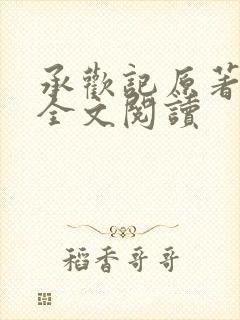 承歡記原著
全文閱讀
稻香哥哥